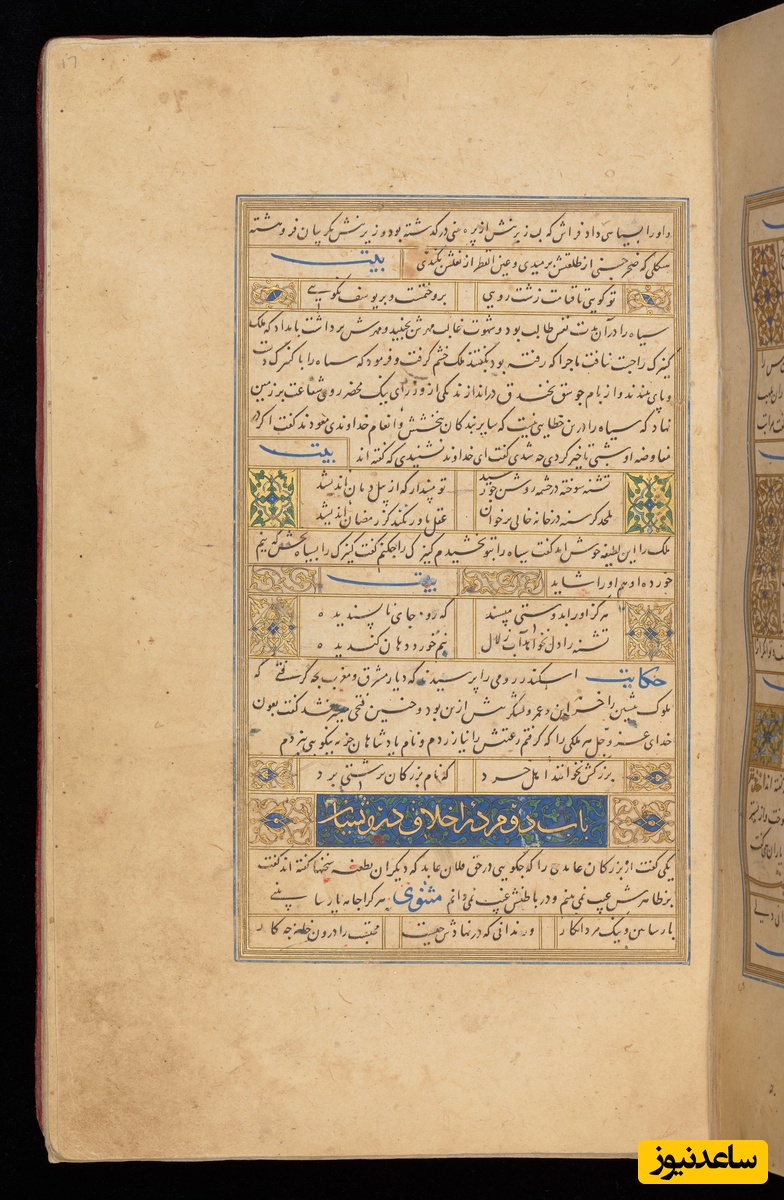 و او را بسیاهی داد فراش که لب زبرینش از پره بینی درگذشته بود و زیرینش بگریبان فروهشته
هیکلی که صخر جنی از طلعتش برمیدی و عین القطر از بغلش بگندی بیت
تو گویی تا قیامت زشت رویی برو ختمست و بر یوسف نکویی
سیاه را در آن مدت نفس طالب بود و شهوت غالب مهرش بجنبید و مهرش برداشت بامداد که ملک
کنیزک را جست نیافت ماجرا که رفته بود بگفتند ملک خشم گرفت و فرمود که سیاه را با کنیزک دست
و پای ببندند و از بام جوسق بخندق دراندازند یکی از وزرای نیک محضر روی شفاعت بر زمین
نهاد که سیاه را درین خطایی نیست که سایر بندگان ببخشش و انعام خداوندی متعودند گفت اگر در
مفاوضه او شبی تاخیر کردی چه شدی گفت ای خداوند نشنیدی که گفته اند بیت
تشنه سوخته در چشمه روشن چو رسید تو مپندار که از پیل دمان اندیشد
ملحد گرسنه در خانه خالی بر خوان عقل باور نکند کز رمضان اندیشد
ملک را این لطیفه خوش آمد گفت سیاه را بتو بخشیدم کنیزک را چکنم گفت کنیزک را بسیاه بخش که نیم
خورده او هم او را شاید بیت
هرگز او را بدوستی مپسند که رود جای ناپسندیده
تشنه را دل نخواهد آب زلال نیم خورد دهان گندیده
حکایت اسکندر رومی را پرسیدند که دیار مشرق و مغرب بچه گرفتی که
ملوک پیشین را خزاین و عمر و لشکر بیش ازین بود و چنین فتحی میسر نشد گفت بعون
خدای عز و جل هر ملکی را که گرفتم رعیتش را نیازردم و نام پادشاهان جز به نیکویی نبردم
بزرگش نخوانند اهل خرد که نام بزرگان بزشتی برد
باب دوم در اخلاق درویشان
یکی گفت از بزرگان عابدی را که چگویی در حق فلان عابد که دیگران بطعنه سخنها گفته اند گفت
بر ظاهرش عیب نمی بینم و در باطنش غیب نمی دانم مثنوی هر کرا جامه پارسا بینی
پارسا بین و نیک مرد انگار ور ندانی که در نهادش چیست محتسب را درون خانه چه کار
ساعدنیوز